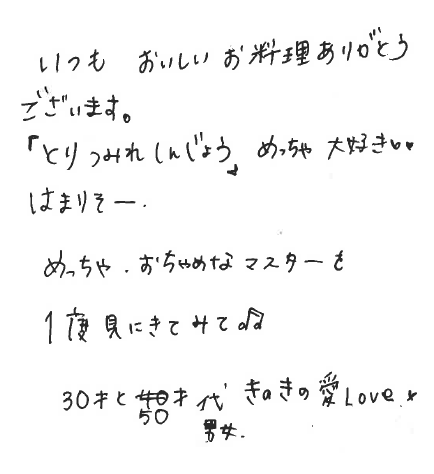 いつも おいしいお料理ありがとう
ございます。
「とりつみれしんじょう」めっちゃ 大好き♥♥
はまりそー.
めっちゃ.おちゃめなマスターを
1度見にきてみて♫
30才と50才代 きのきの愛Love.★
男女.